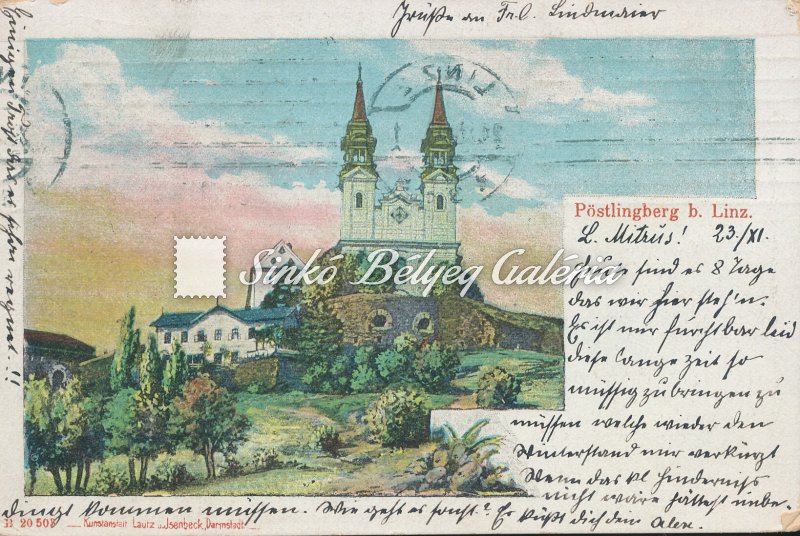 Grüße an Frl. Lindmaier
LINZ
Pöstlingberg b. Linz.
L. Mitrus! 23./XI.
Heute sind es 8 Tage
das wir hier steh'n.
Es ist nur furchtbar leid
diese lange Zeit so
müssig zu bringen zu
müssen welche wieder den
Winterstand nur verkürzt
Wenn das kl Hinderniß
nicht wäre hättest unbe-
dingt kommen müssen. Wie geht es sonst? Es küßt dich dein Alex.
B 20 508 Kunstanstalt Lautz u. Isenbeck, Darmstadt
Sinkó Bélyeg Galéria